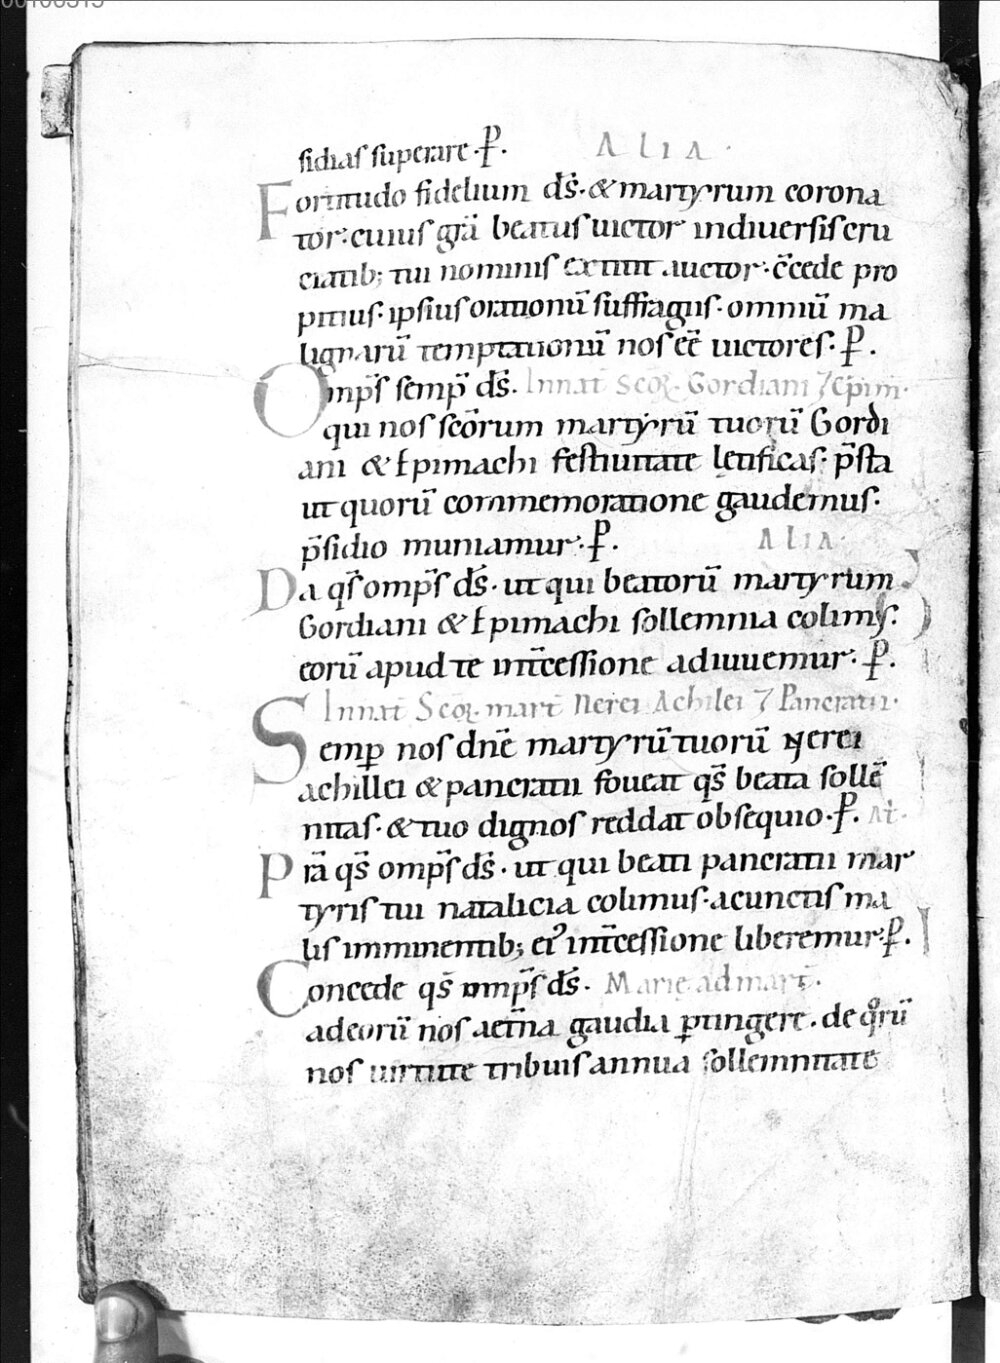 sidias superare· P̄· ALIA·
Fortitudo fidelium d̄s·&martyrum corona
tor·cuius grā beatus uictor indiuersis cru
ciatib; tui nominis extitit auctor·c̄cede pro
pitius·ipsius orationū suffragiis·omniū ma
lignarū temptationū nos eē uictores·P̄·
Omp̄s semp̄ d̄s. Innat̄ Scōꝝ Gordiani ⁊ Epim̄·
qui nos scōrum martyrū tuorū Gordi
ani & Epimachi festiuitate lętificas·p̄sta
ut quorū commemoratione gaudemus·
p̄sidio muniamur·P̄· ALIA·
Da qs̄ omp̄s d̄s·ut qui beatorū martyrum
Gordiani & Epimachi sollemnia colimꝰ·
eorū apud te int̄cessione adiuuemur·P̄·
Innat̄ Scōꝝ mart̄ Nerei Achilei ⁊ Pancratii·
Semꝑ nos dn̄e martyrū tuorū Nerei
achillei & pancratii foueat qs̄ beata sollē
nitas·& tuo dignos reddat obsequio·P̄· Al̄·
Prā qs̄ omp̄s d̄s·ut qui beati pancratii mar
tyris tui natalicia colimus·acunctis ma
lis imminentib; eiꝰ int̄cessione liberemur·P̄·
Concede qs̄ omp̄s d̄s· Marię admart̄·
adeorū nos aet̄na gaudia ꝑtingere·de qͦrū
nos uirtute tribuis annua sollemnitate